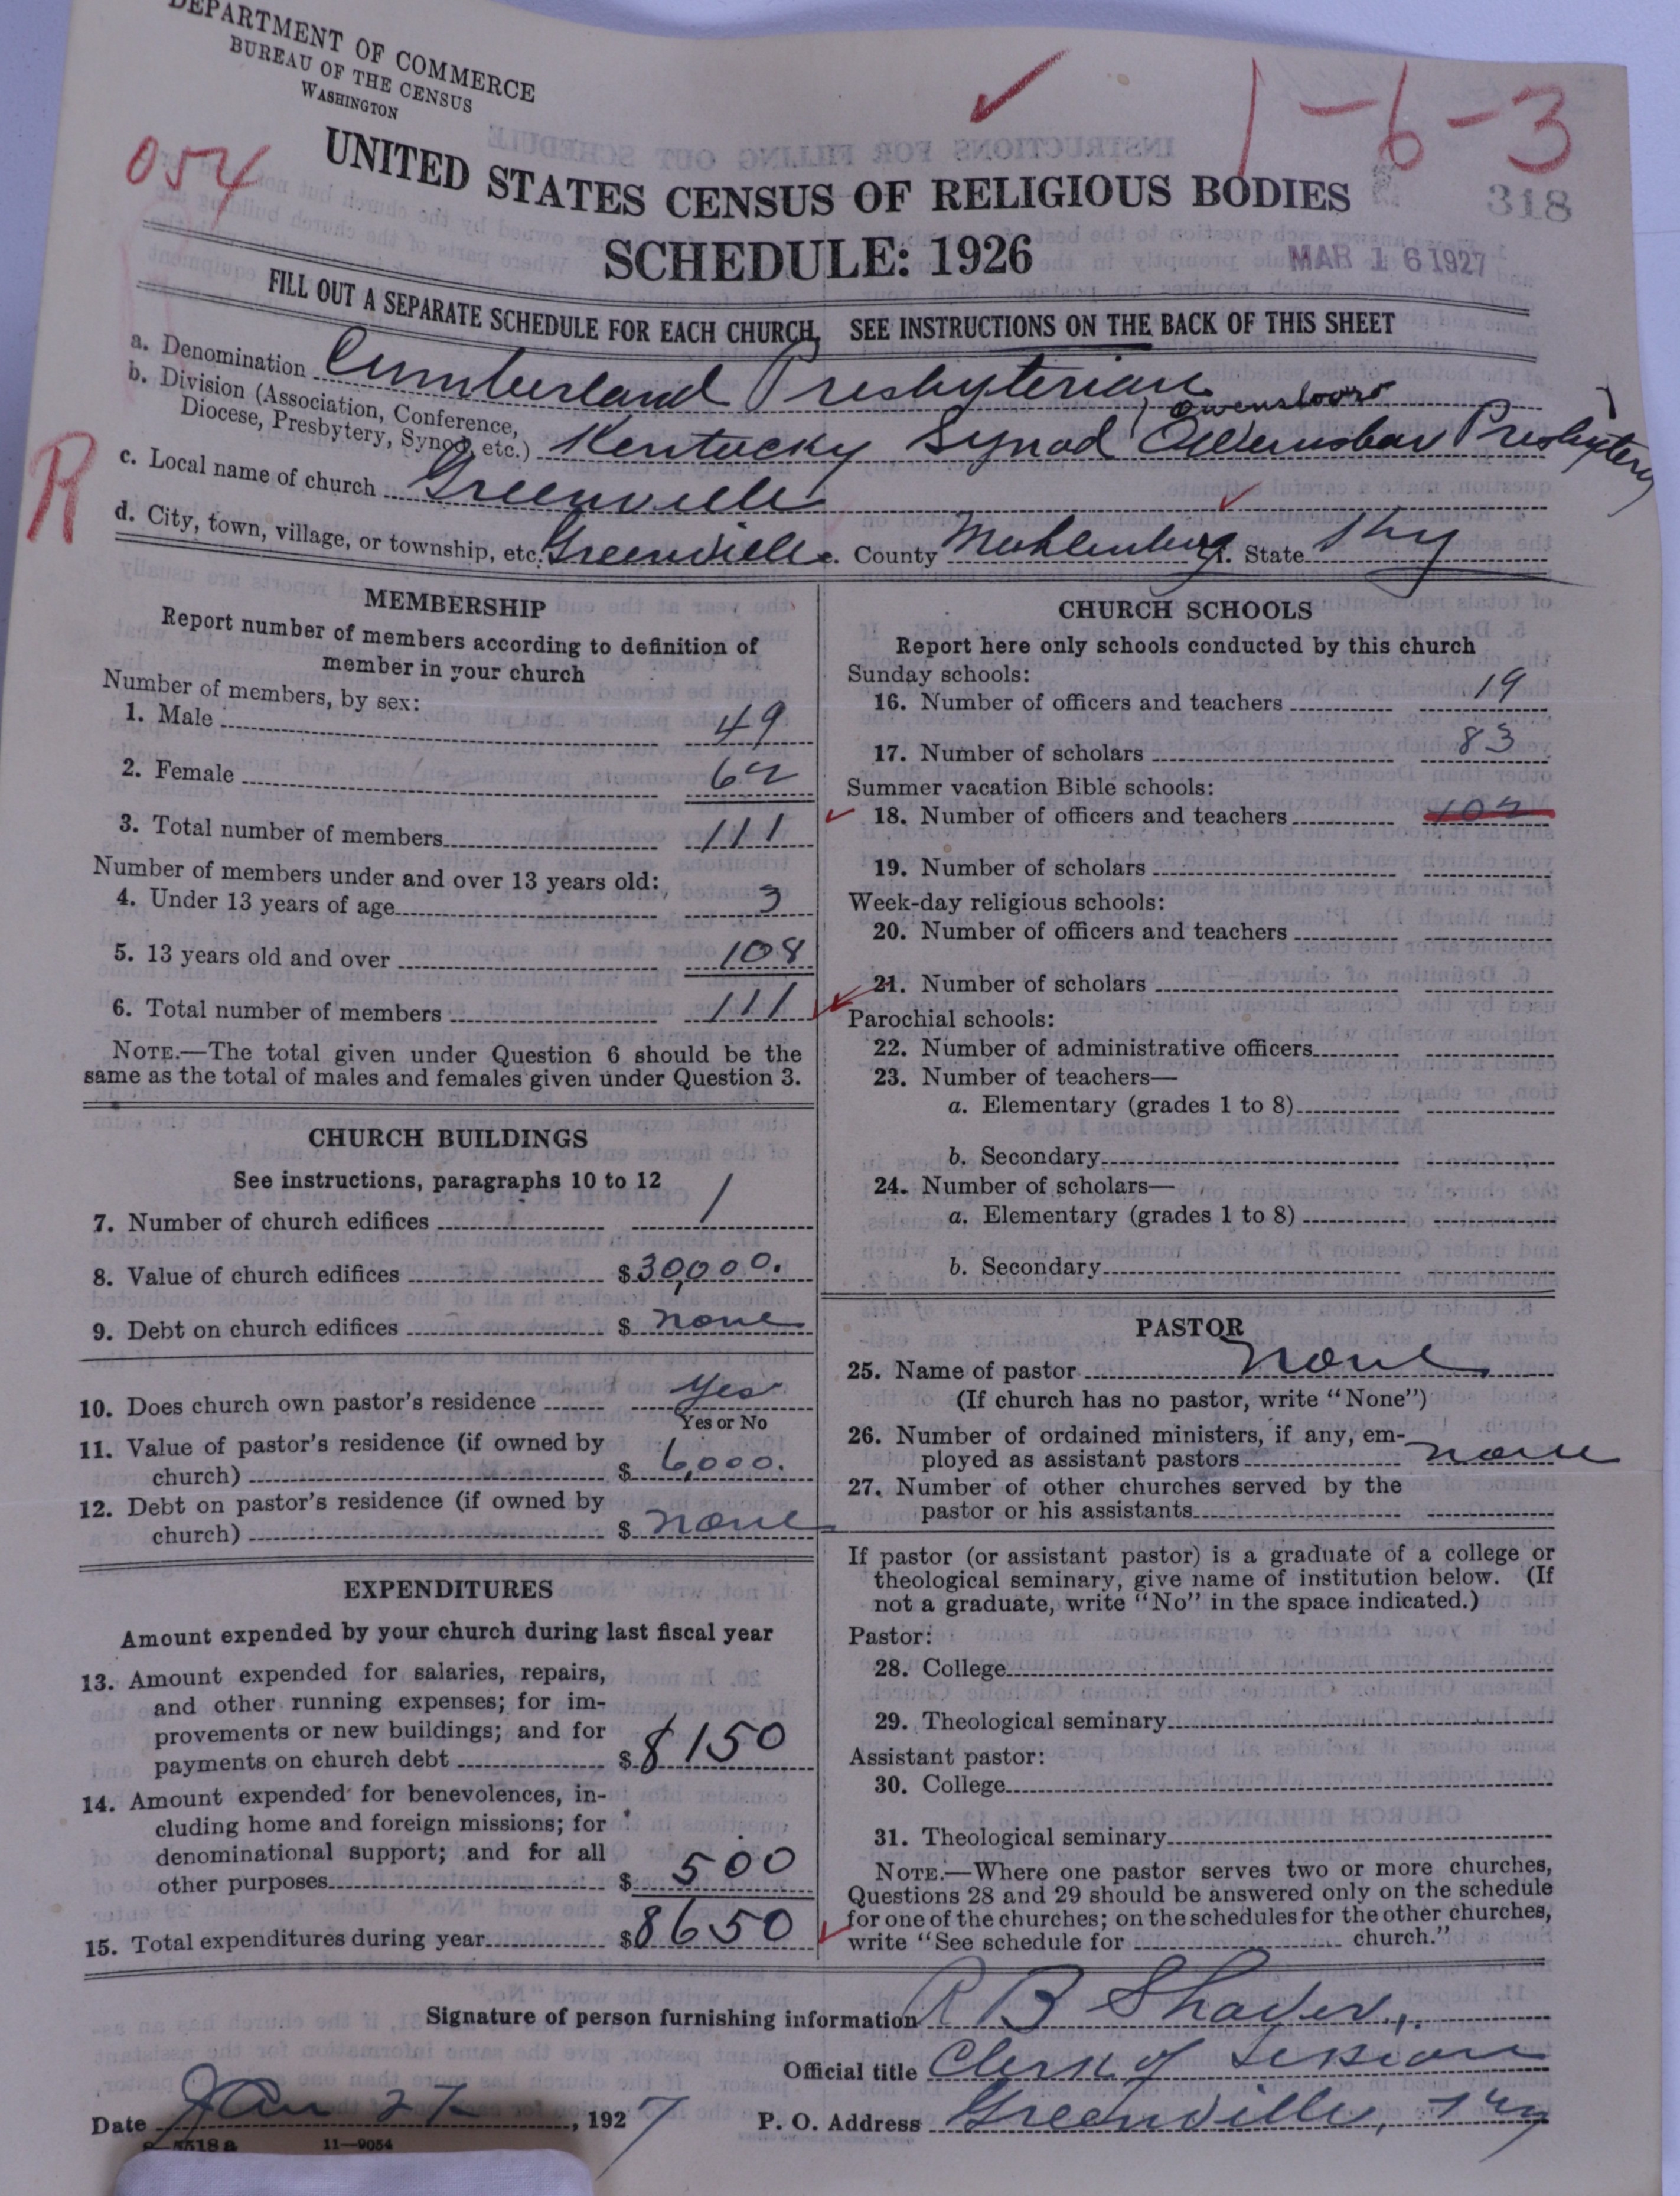 DEPARTMENT OF COMMERCE
BUREAU OF THE CENSUS
WASHINGTON
1-6-3
054
318
UNITED STATES CENSUS OF RELIGIOUS BODIES
SCHEDULE: 1926
MAR 16 1927
FILL OUT A SEPARATE SCHEDULE FOR EACH CHURCH. SEE INSTRUCTIONS ON THE BACK OF THIS SHEET
a. Denomination Cumberland Presbyterian
b. Division (Association, Conference, Diocese, Presbytery, Synod, etc.) Kentucky Synod Owensboro Presbytery
R
c. Local name of church Greenville
d. City, town, village, or township, etc. Greenville e. County Muhlenburg f. State Ky
MEMBERSHIP
Report number of members according to definition of
member in your church
Number of members, by sex:
1. Male 49
2. Female 62
3. Total number of members 111
Number of members under and over 13 years old:
4. Under 13 years of age 3
5. 13 years old and over 108
6. Total number of members 111
NOTE.—The total given under Question 6 should be the
same as the total of males and females given under Question 3.
CHURCH BUILDINGS
See instructions, paragraphs 10 to 12
7. Number of church edifices 1
8. Value of church edifices $30,000.
9. Debt on church edifices $ none
10. Does church own pastor's residence Yes
Yes or No
11. Value of pastor's residence (if owned by
church) $ 6,000.
12. Debt on pastor's residence (if owned by
church) $ none
EXPENDITURES
Amount expended by your church during last fiscal year
13. Amount expended for salaries, repairs,
and other running expenses; for im-
provements or new buildings; and for
payments on church debt $8150
14. Amount expended for benevolences, in-
cluding home and foreign missions; for
denominational support; and for all
other purposes $ 500
15. Total expenditures during year $8650
CHURCH SCHOOLS
Report here only schools conducted by this church
Sunday schools:
16. Number of officers and teachers 19
17. Number of scholars 83
Summer vacation Bible schools:
18. Number of officers and teachers 102
19. Number of scholars
Week-day religious schools:
20. Number of officers and teachers
21. Number of scholars
Parochial schools:
22. Number of administrative officers
23. Number of teachers—
a. Elementary (grades 1 to 8)
b. Secondary
24. Number of scholars—
a. Elementary (grades 1 to 8)
b. Secondary
PASTOR
25. Name of pastor none
(If church has no pastor, write "None")
26. Number of ordained ministers, if any, em-
ployed as assistant pastors none
27. Number of other churches served by the
pastor or his assistants
If pastor (or assistant pastor) is a graduate of a college or
theological seminary, give name of institution below. (If
not a graduate, write "No" in the space indicated.)
Pastor:
28. College
29. Theological seminary
Assistant pastor:
30. College
31. Theological seminary
NOTE.—Where one pastor serves two or more churches,
Questions 28 and 29 should be answered only on the schedule
for one of the churches; on the schedules for the other churches,
write "See schedule for church."
Signature of person furnishing information R B Shaver,
Official title Clerk of Session
Date Jan 27, 1927 P. O. Address Greenville, Ky
11—9054